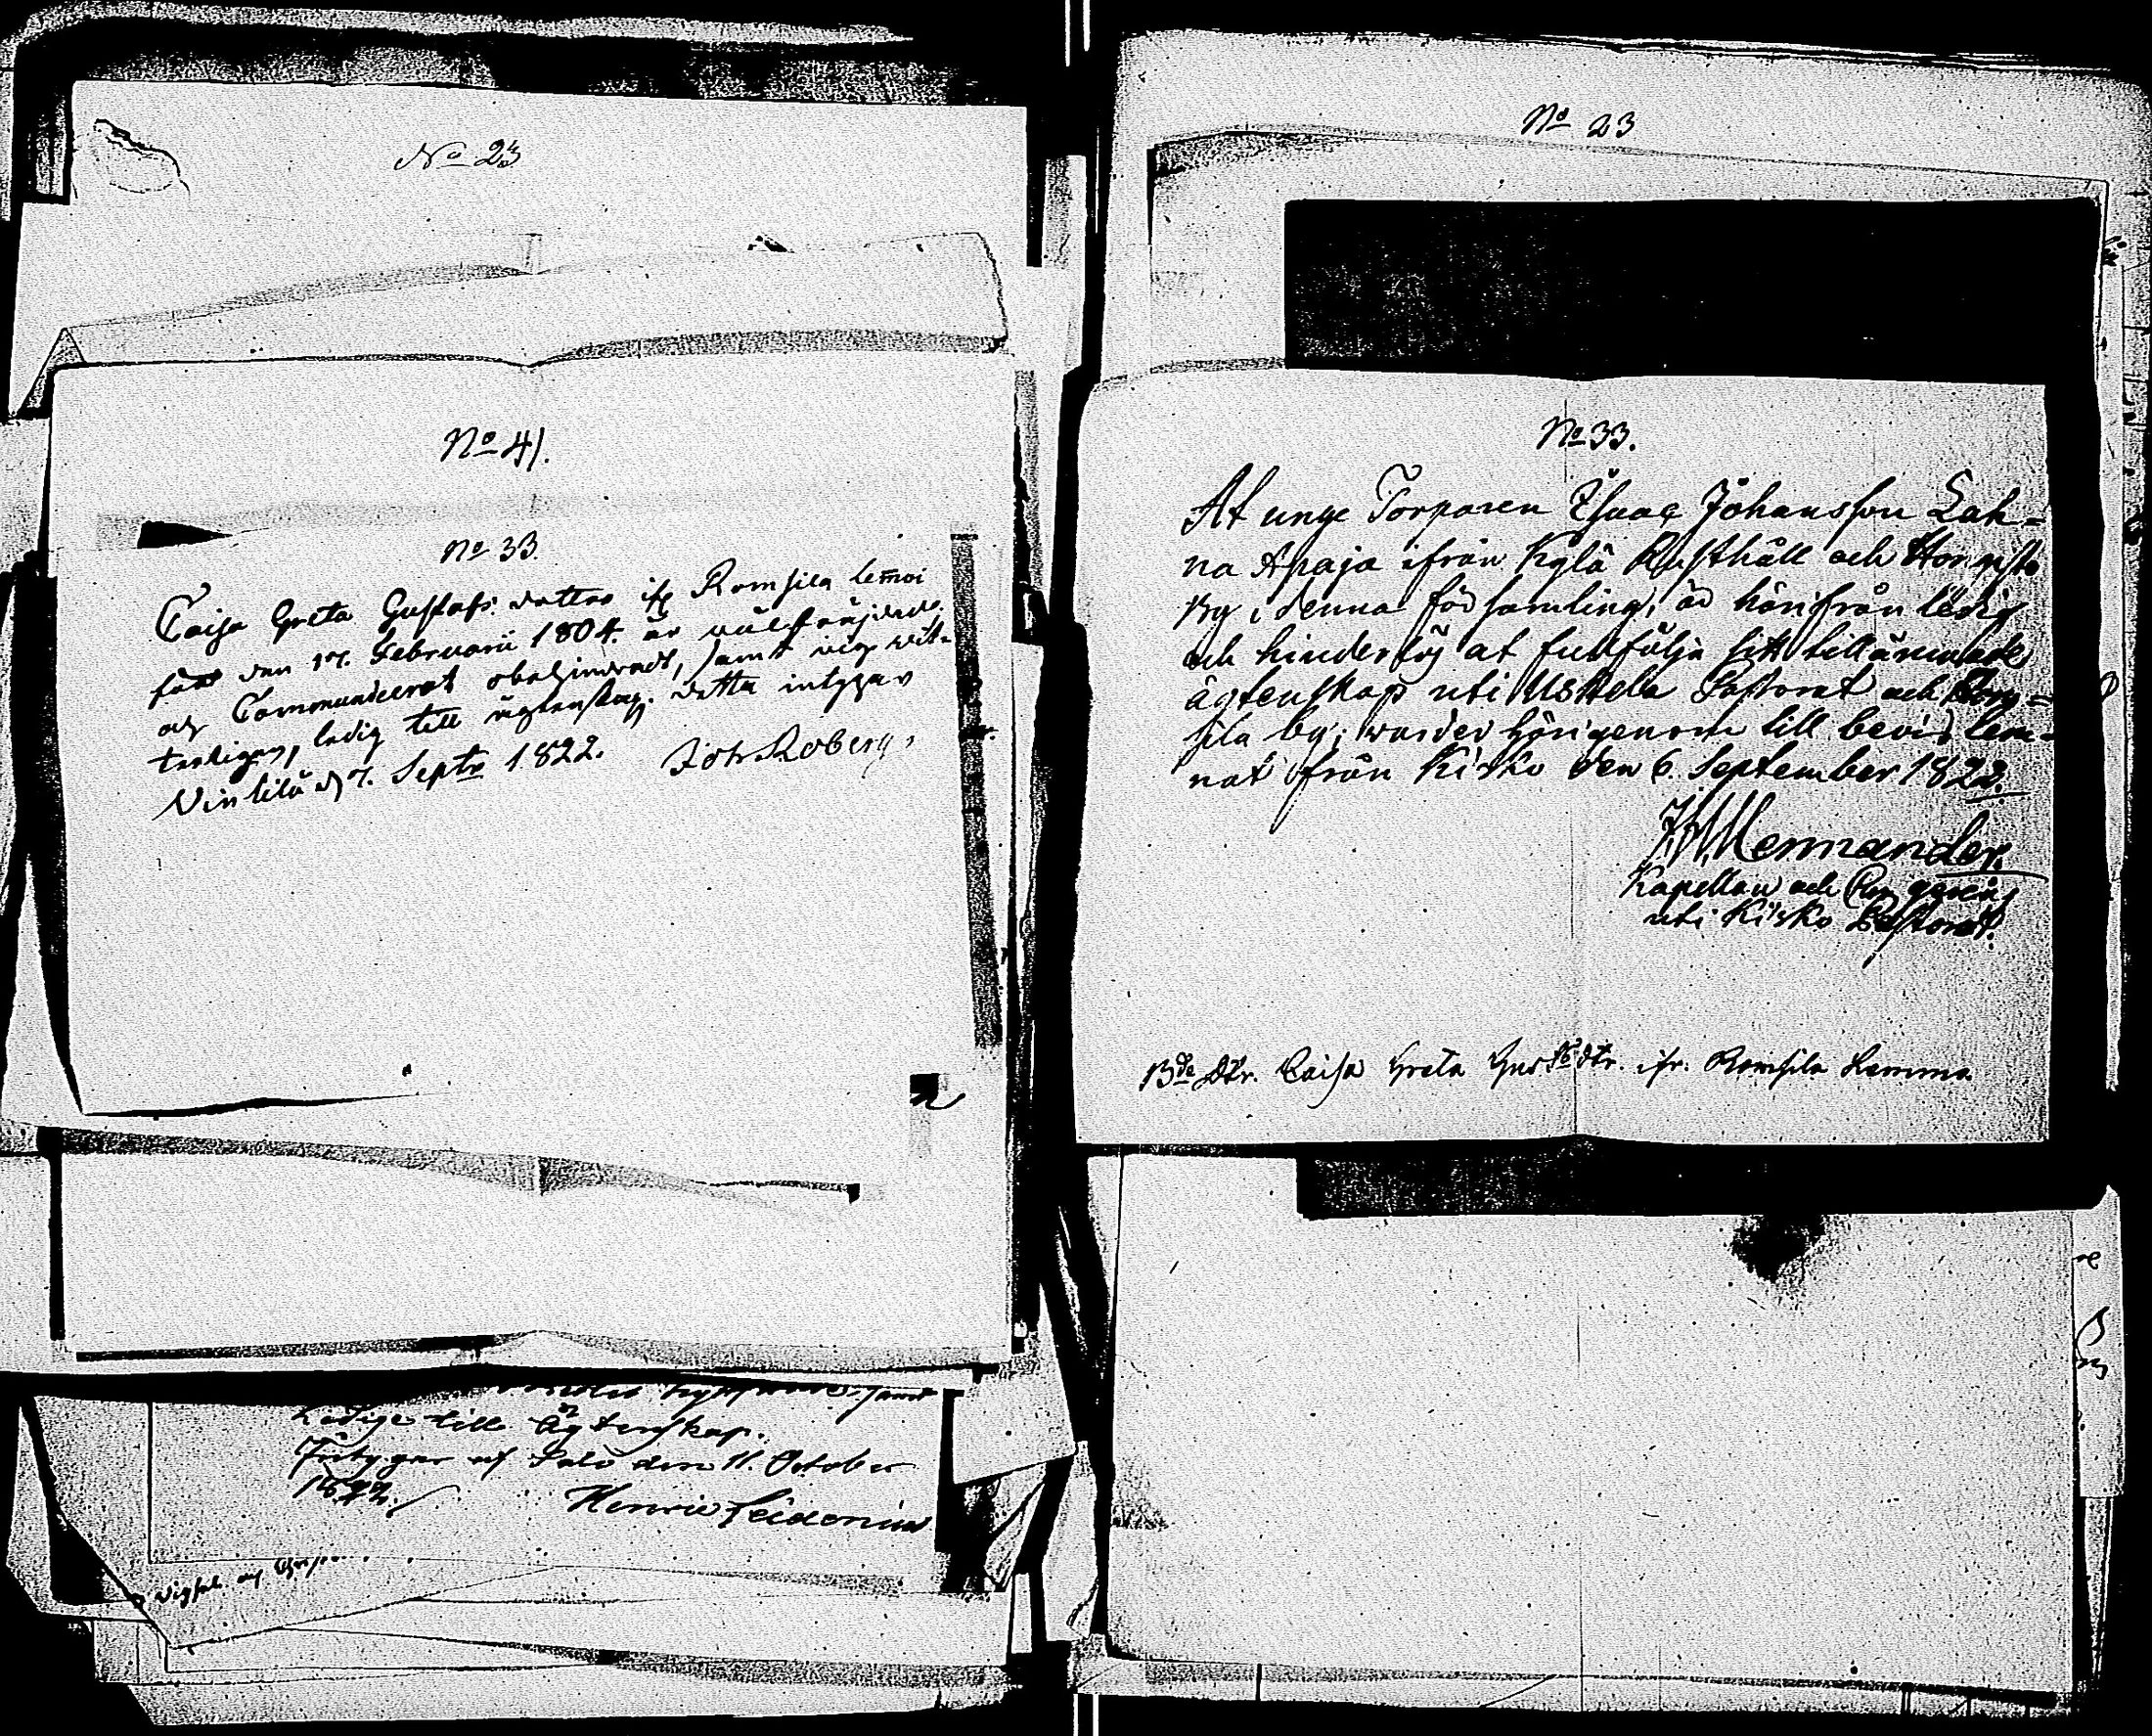 No 23
No 41.
No 33.
Caisa Greta Gustafs dotter ifr Romsila Lemoi
född den 17. Februarii 1804. är välfräjdad
och Communicerat obehindradt, samt vigs vit-
terligen, ledig till ägtenskap. Detta intygar
Vintilä d 7. Septr 1822. Joh. Roberg
Ledige till Ägtenskap.
Intygar af Salo den 11. October
1822. Henric Leidenius
No 23
No 33.
At unge Torparen Isaac Johansson Lah-
na Apaja ifrån Kylä Rusthåll och
By i denna församling, är härifrån ledig
och hinderslös at fullfölja sitt tillämnade
ägtenskap uti Uskela Pastorat och Rom-
sila by; warder härigenom till bevis lem-
nat ifrån Kisko den 6. September 1822.
Mennander.
Kapellan och
uti Kisko Pastorat.
Bde Dtr. Caisa Greta Gustfsdtr. ifr. Romsila Lemmo.